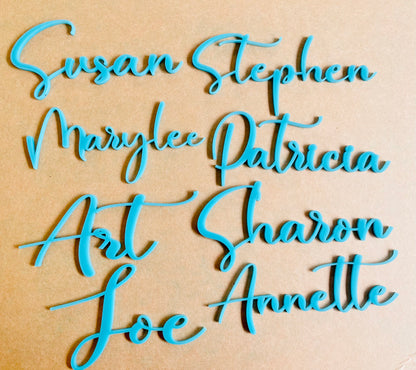 Susan Stephen
Marylee Patricia
Art Sharon
Joe Annette